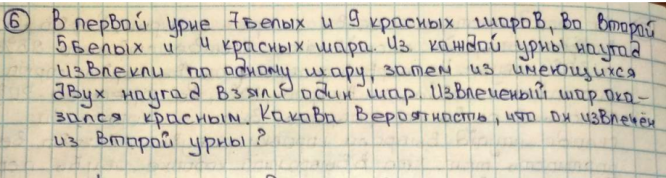 ⑥ В первой урне 7 белых и 9 красных шаров, во второй
5 белых и 4 красных шара. Из каждой урны наугад
извлекли по одному шару, затем из имеющихся
двух наугад взяли один шар. Извлеченый шар ока-
зался красным. Какова вероятность, что он извлечён
из второй урны?